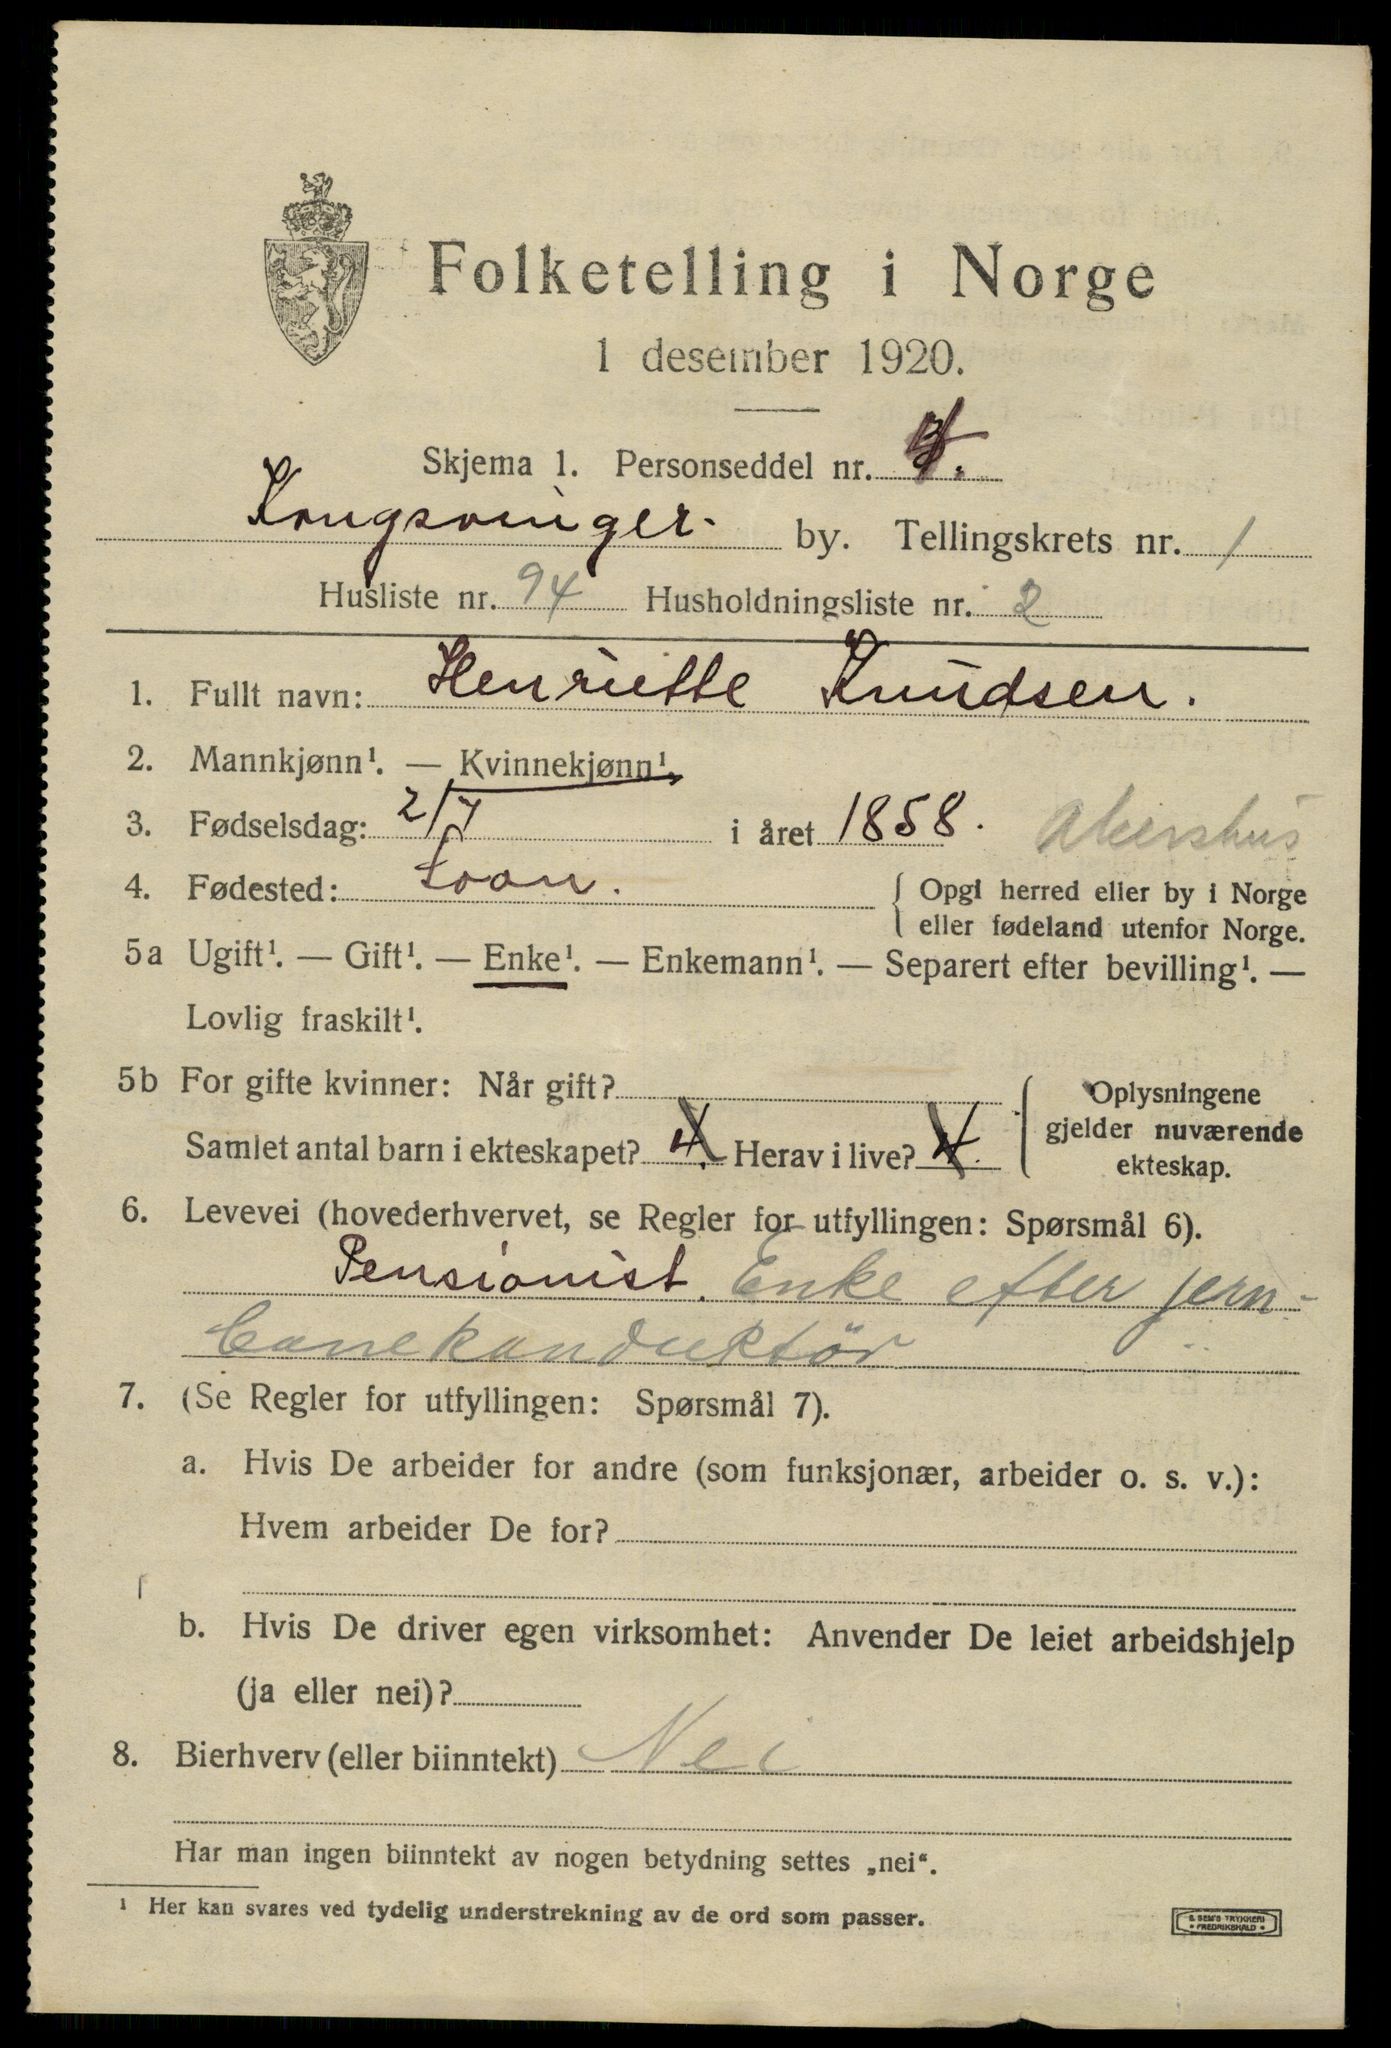 Folketelling i Norge
1 desember 1920.
Skjema 1. Personseddel nr.
Kongsvinger. by. Tellingskrets nr. 1
Husliste nr. 94 Husholdningsliste nr. 2
1. Fullt navn: Henriette Knudsen.
2. Mannkjønn¹. — Kvinnekjønn¹.
3. Fødselsdag: 2/7 i året 1858. Akershus
4. Fødested: { Opgi herred eller by i Norge
eller fødeland utenfor Norge.
5a Ugift¹. — Gift¹. — Enke¹. — Enkemann¹. — Separert efter bevilling¹. —
Lovlig fraskilt¹.
5b For gifte kvinner: Når gift? { Oplysningene
gjelder nuværende
Samlet antal barn i ekteskapet? 4. Herav i live? 4.
ekteskap.
6. Levevei (hovederhvervet, se Regler for utfyllingen: Spørsmål 6).
Pensionist. Enke efter jern-
banekonduktör
7. (Se Regler for utfyllingen: Spørsmål 7).
a. Hvis De arbeider for andre (som funksjonær, arbeider o. s. v.):
Hvem arbeider De for?
b. Hvis De driver egen virksomhet: Anvender De leiet arbeidshjelp
(ja eller nei)?
8. Bierhverv (eller biinntekt) Nei
Har man ingen biinntekt av nogen betydning settes „nei“.
¹ Her kan svares ved tydelig understrekning av de ord som passer.
S. SEM'S TRYKKERI
• FREDRIKSHALD •